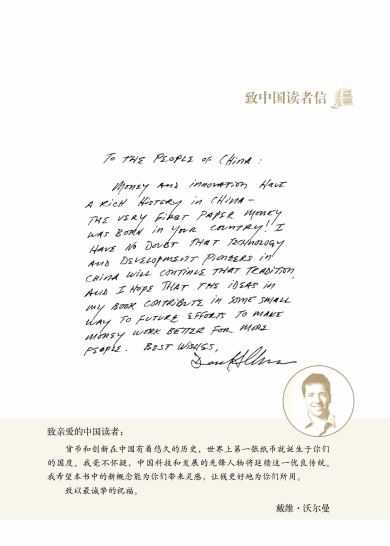 致中国读者信
TO THE PEOPLE OF CHINA:
MONEY AND INNOVATION HAVE
A RICH HISTORY IN CHINA –
THE VERY FIRST PAPER MONEY
WAS BORN IN YOUR COUNTRY! I
HAVE NO DOUBT THAT TECHNOLOGY
AND DEVELOPMENT PIONEERS IN
CHINA WILL CONTINUE THAT TRADITION
AND I HOPE THAT THE IDEAS IN
MY BOOK CONTRIBUTE IN SOME SMALL
WAY TO FUTURE EFFORTS TO MAKE
MONEY WORK BETTER FOR MORE
PEOPLE. BEST WISHES,
致亲爱的中国读者：
货币和创新在中国有着悠久的历史，世界上第一张纸币就诞生于你们
的国度。我毫不怀疑，中国科技和发展的先锋人物将延续这一优良传统。
我希望本书中的新概念能为你们带来灵感，让钱更好地为你们所用。
致以最诚挚的祝福。
戴维·沃尔曼